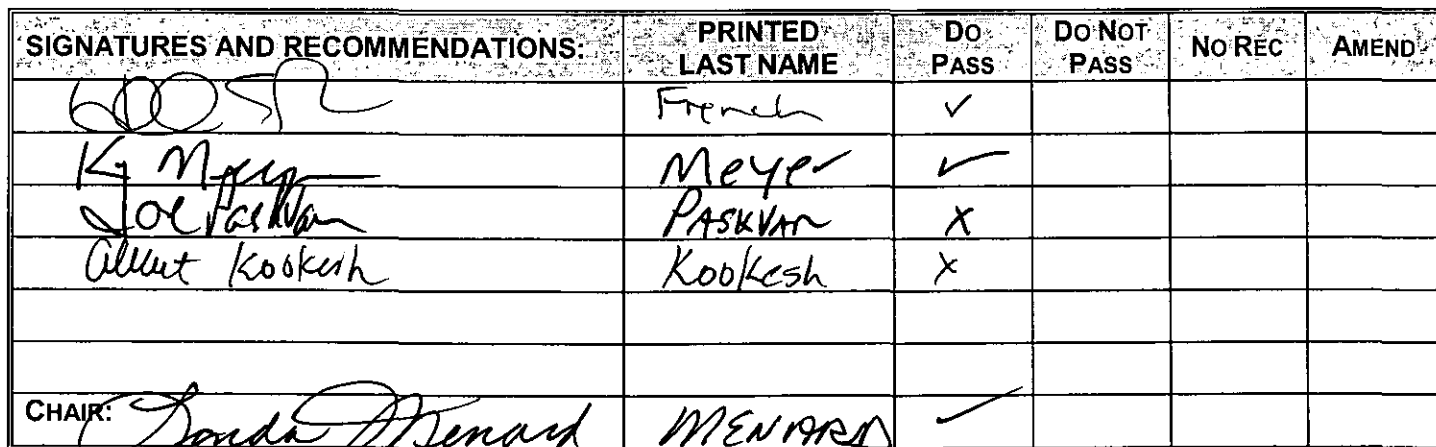 SIGNATURES AND RECOMMENDATIONS: PRINTED LAST NAME DO PASS DO NOT PASS NO REC AMEND
French ✓
Meyer ✓
Joe Paskvan PASKVAN X
Albert Kookesh Kookesh X
CHAIR: Linda Menard MENARD ✓